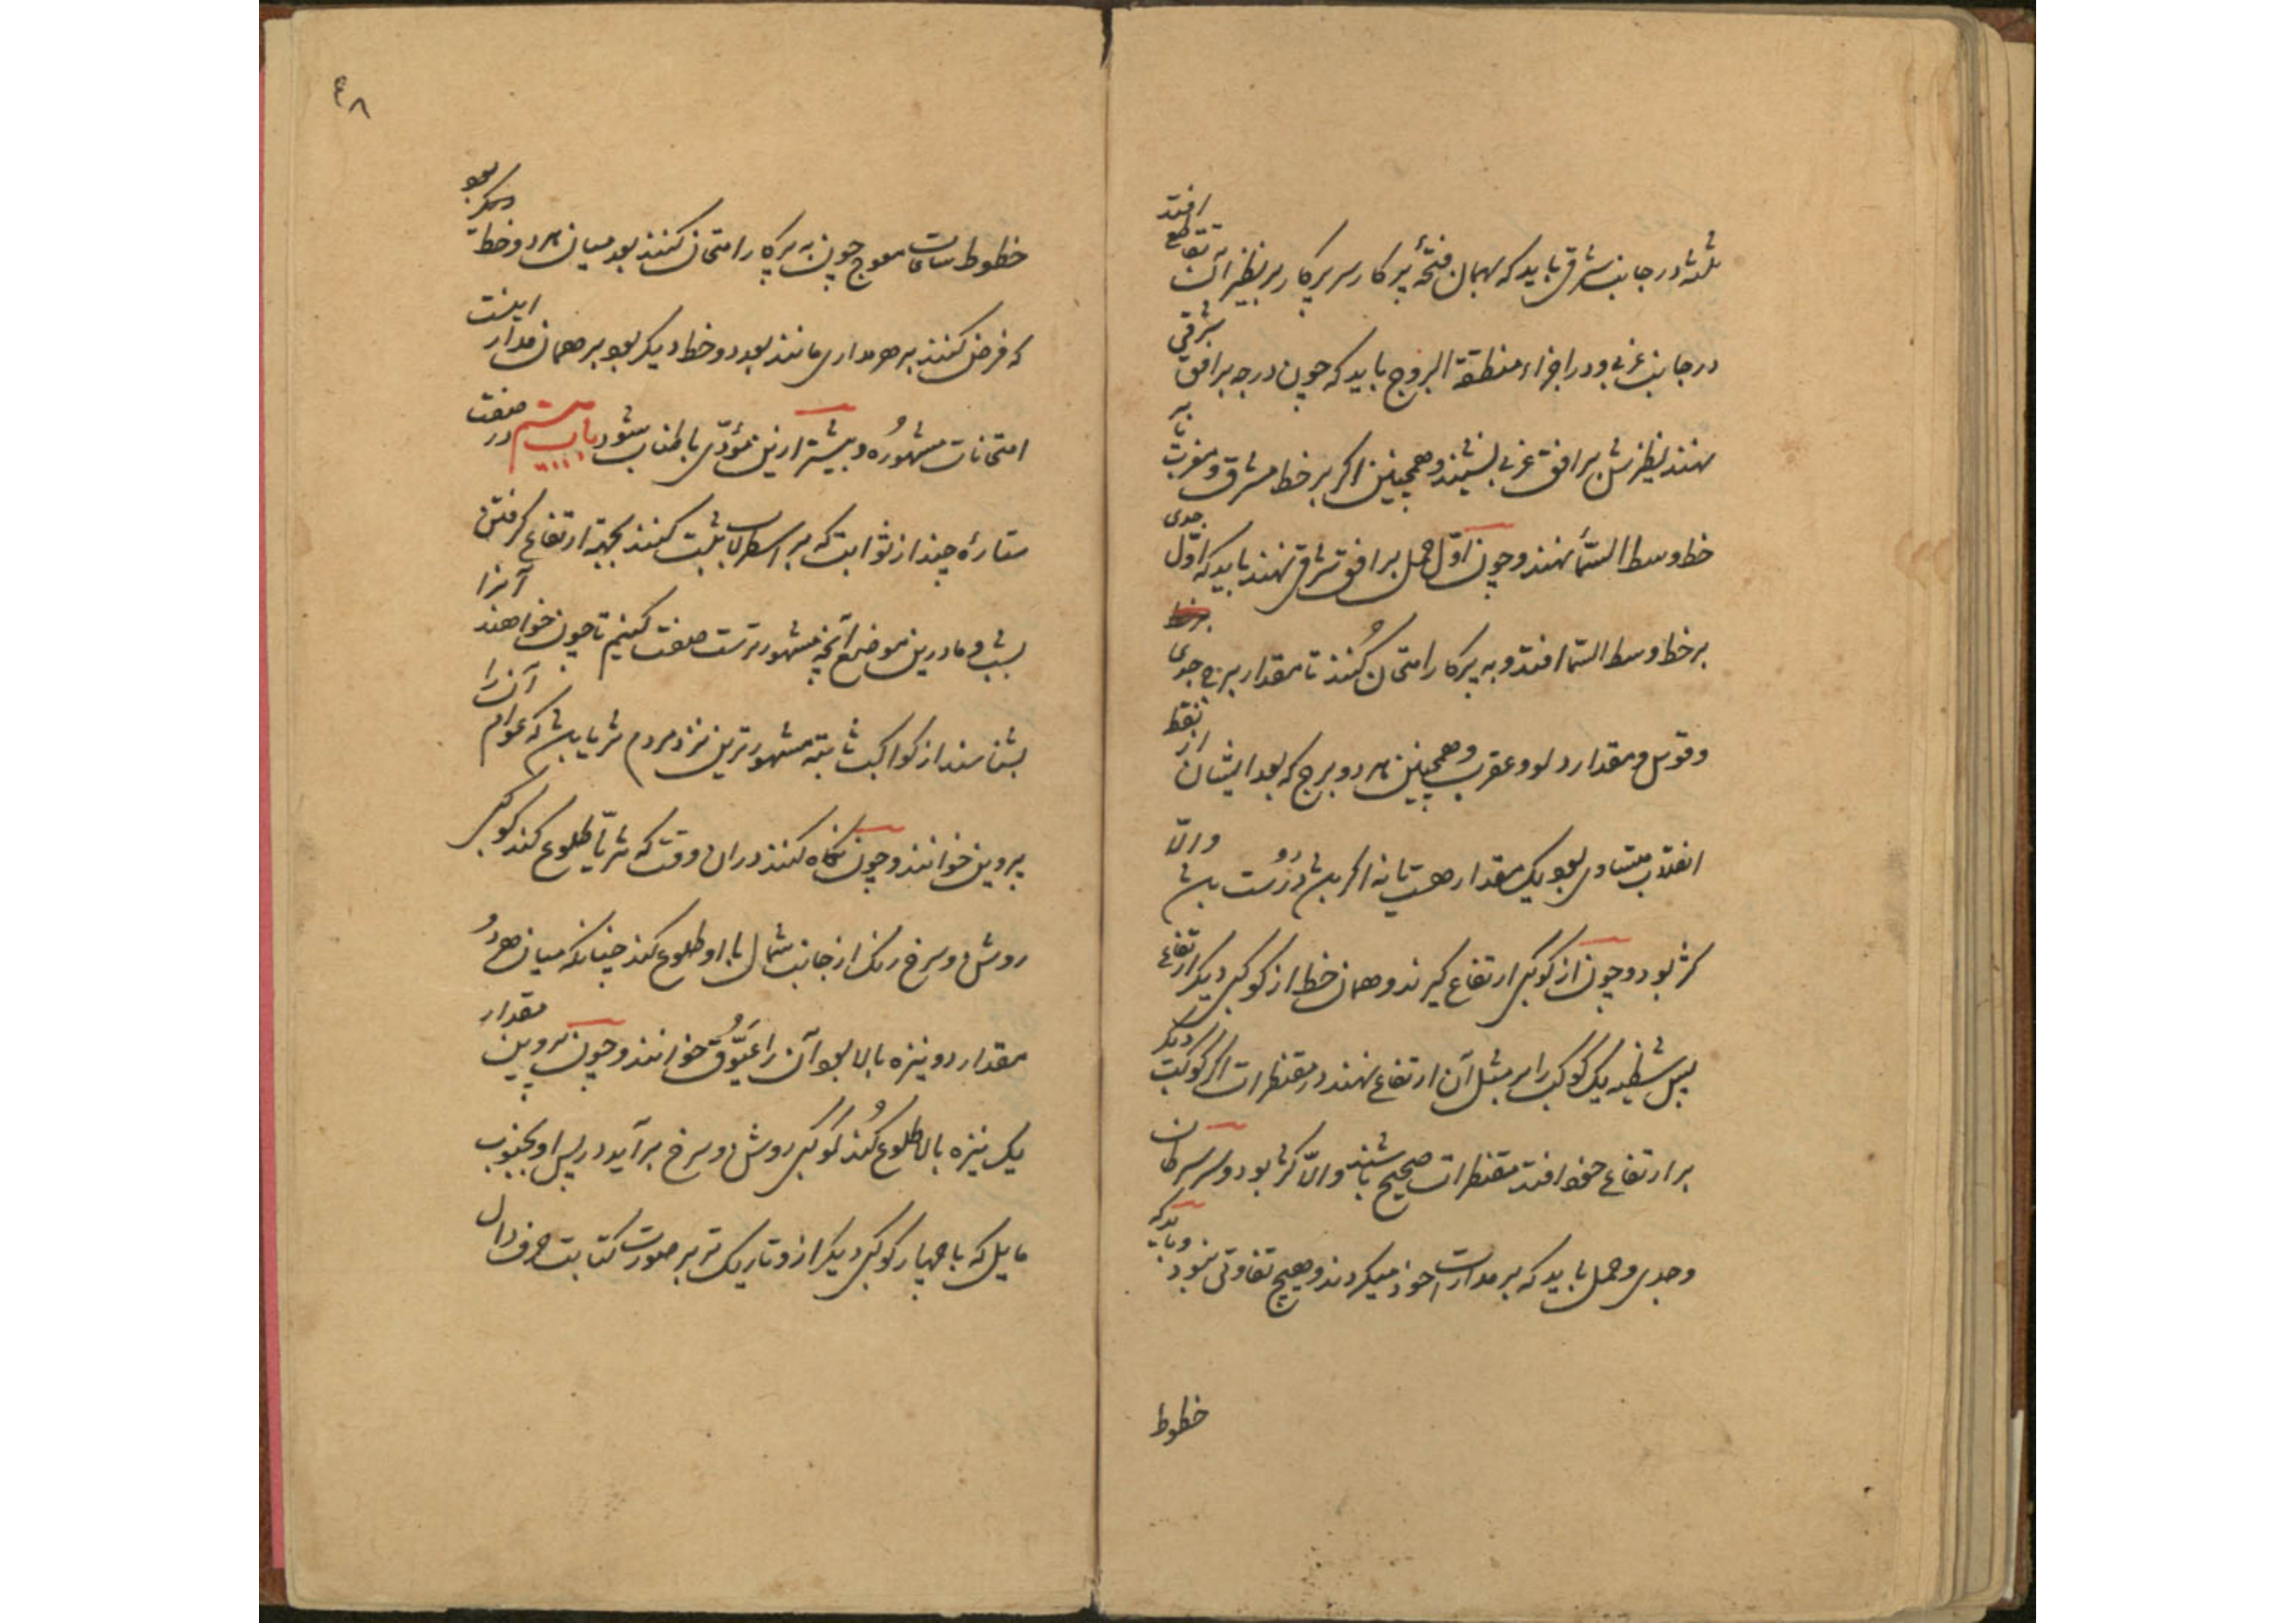 باشد در جانب شرقی باید که بهمان فتحهٔ پرکار سر پرکار بر نظیر آن تقاطع افتد
در جانب غربی و در اجزاء منطقة البروج باید که چون درجه بر افق شرقی
نهند نظیرش بر افق غربی نشیند و همچنین اگر بر خط مشرق و مغرب یا بر
خط وسط السّماء نهند و چون اوّل حمل بر افق شرقی نهند باید که اوّل جدی
بر خط وسط السّما افتد و به پرکار امتحان کُنند تا مقدار برج جدی
و قوس و مقدار دلو و عقرب و همچنین هر دو برج که بعد ایشان از نقطۀ
انقلاب متساوی بود یک مقدار هست یا نه اگر باشد دُرُست باشد والّا
کژ بود و چون از کوکبی ارتفاع گیرند و همان لحظه از کوکبی دیگر ارتفاع
پس شظیه یک کوکب را بر مثل آن ارتفاع نهند در مقنطرات اگر کوکب دیگر
بر ارتفاع خود افتد مقنطرات صحیح باشند والّا کژ بود و سر سرطان
و جدی و حمل باید که بر مدارات خود میگردند و هیچ تفاوتی نبود و باید که
خطوط
۴۸
خطوط ساعات معوج چون به پرکار امتحان کنند بعد میان هر دو خط
که فرض کنند بر هر مداری مانند بعد دو خط دیگر بود بر همان مدار اینست
امتحانات مشهُوره و بیشتر ازین مُؤدّی باطناب شود باب بیستم در صفت
ستارهٔ چند از ثوابت که بر اسطرلاب ثبت کنند بجهة ارتفاع گرفتن
بشب و ما درین موضع آنچه مشهورترست صفت کنیم تا چون خواهند آنرا
بشناسند از کواکب ثابته مشهورترین نزد مردم ثریا باشد که عوام آن را
پروین خوانند و چون نگاه کنند در ان وقت که ثریّا طلوع کند کوکبی
روشن و سرخ رنگ از جانب شمال با او طلوع کند چنانکه میان هر دُو
مقدار دو نیزه بالا بود آن را عَیُّوق خوانند و چون پروین مقدار
یک نیزه بالا طلوع کُند کوکبی روشن و سرخ برآید در پس او بجنوب
مایل که با چهار کوکب دیگر از و تاریک تر بر صورت کتابت حرف دال